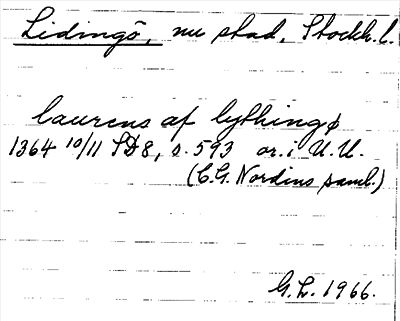 Lidingö, nu stad, Stockh. l.
laurens af lythingø
1364 10/11 SD8, s. 593 or. i U.U.
(C.G. Nordins saml.)
G.L. 1966.